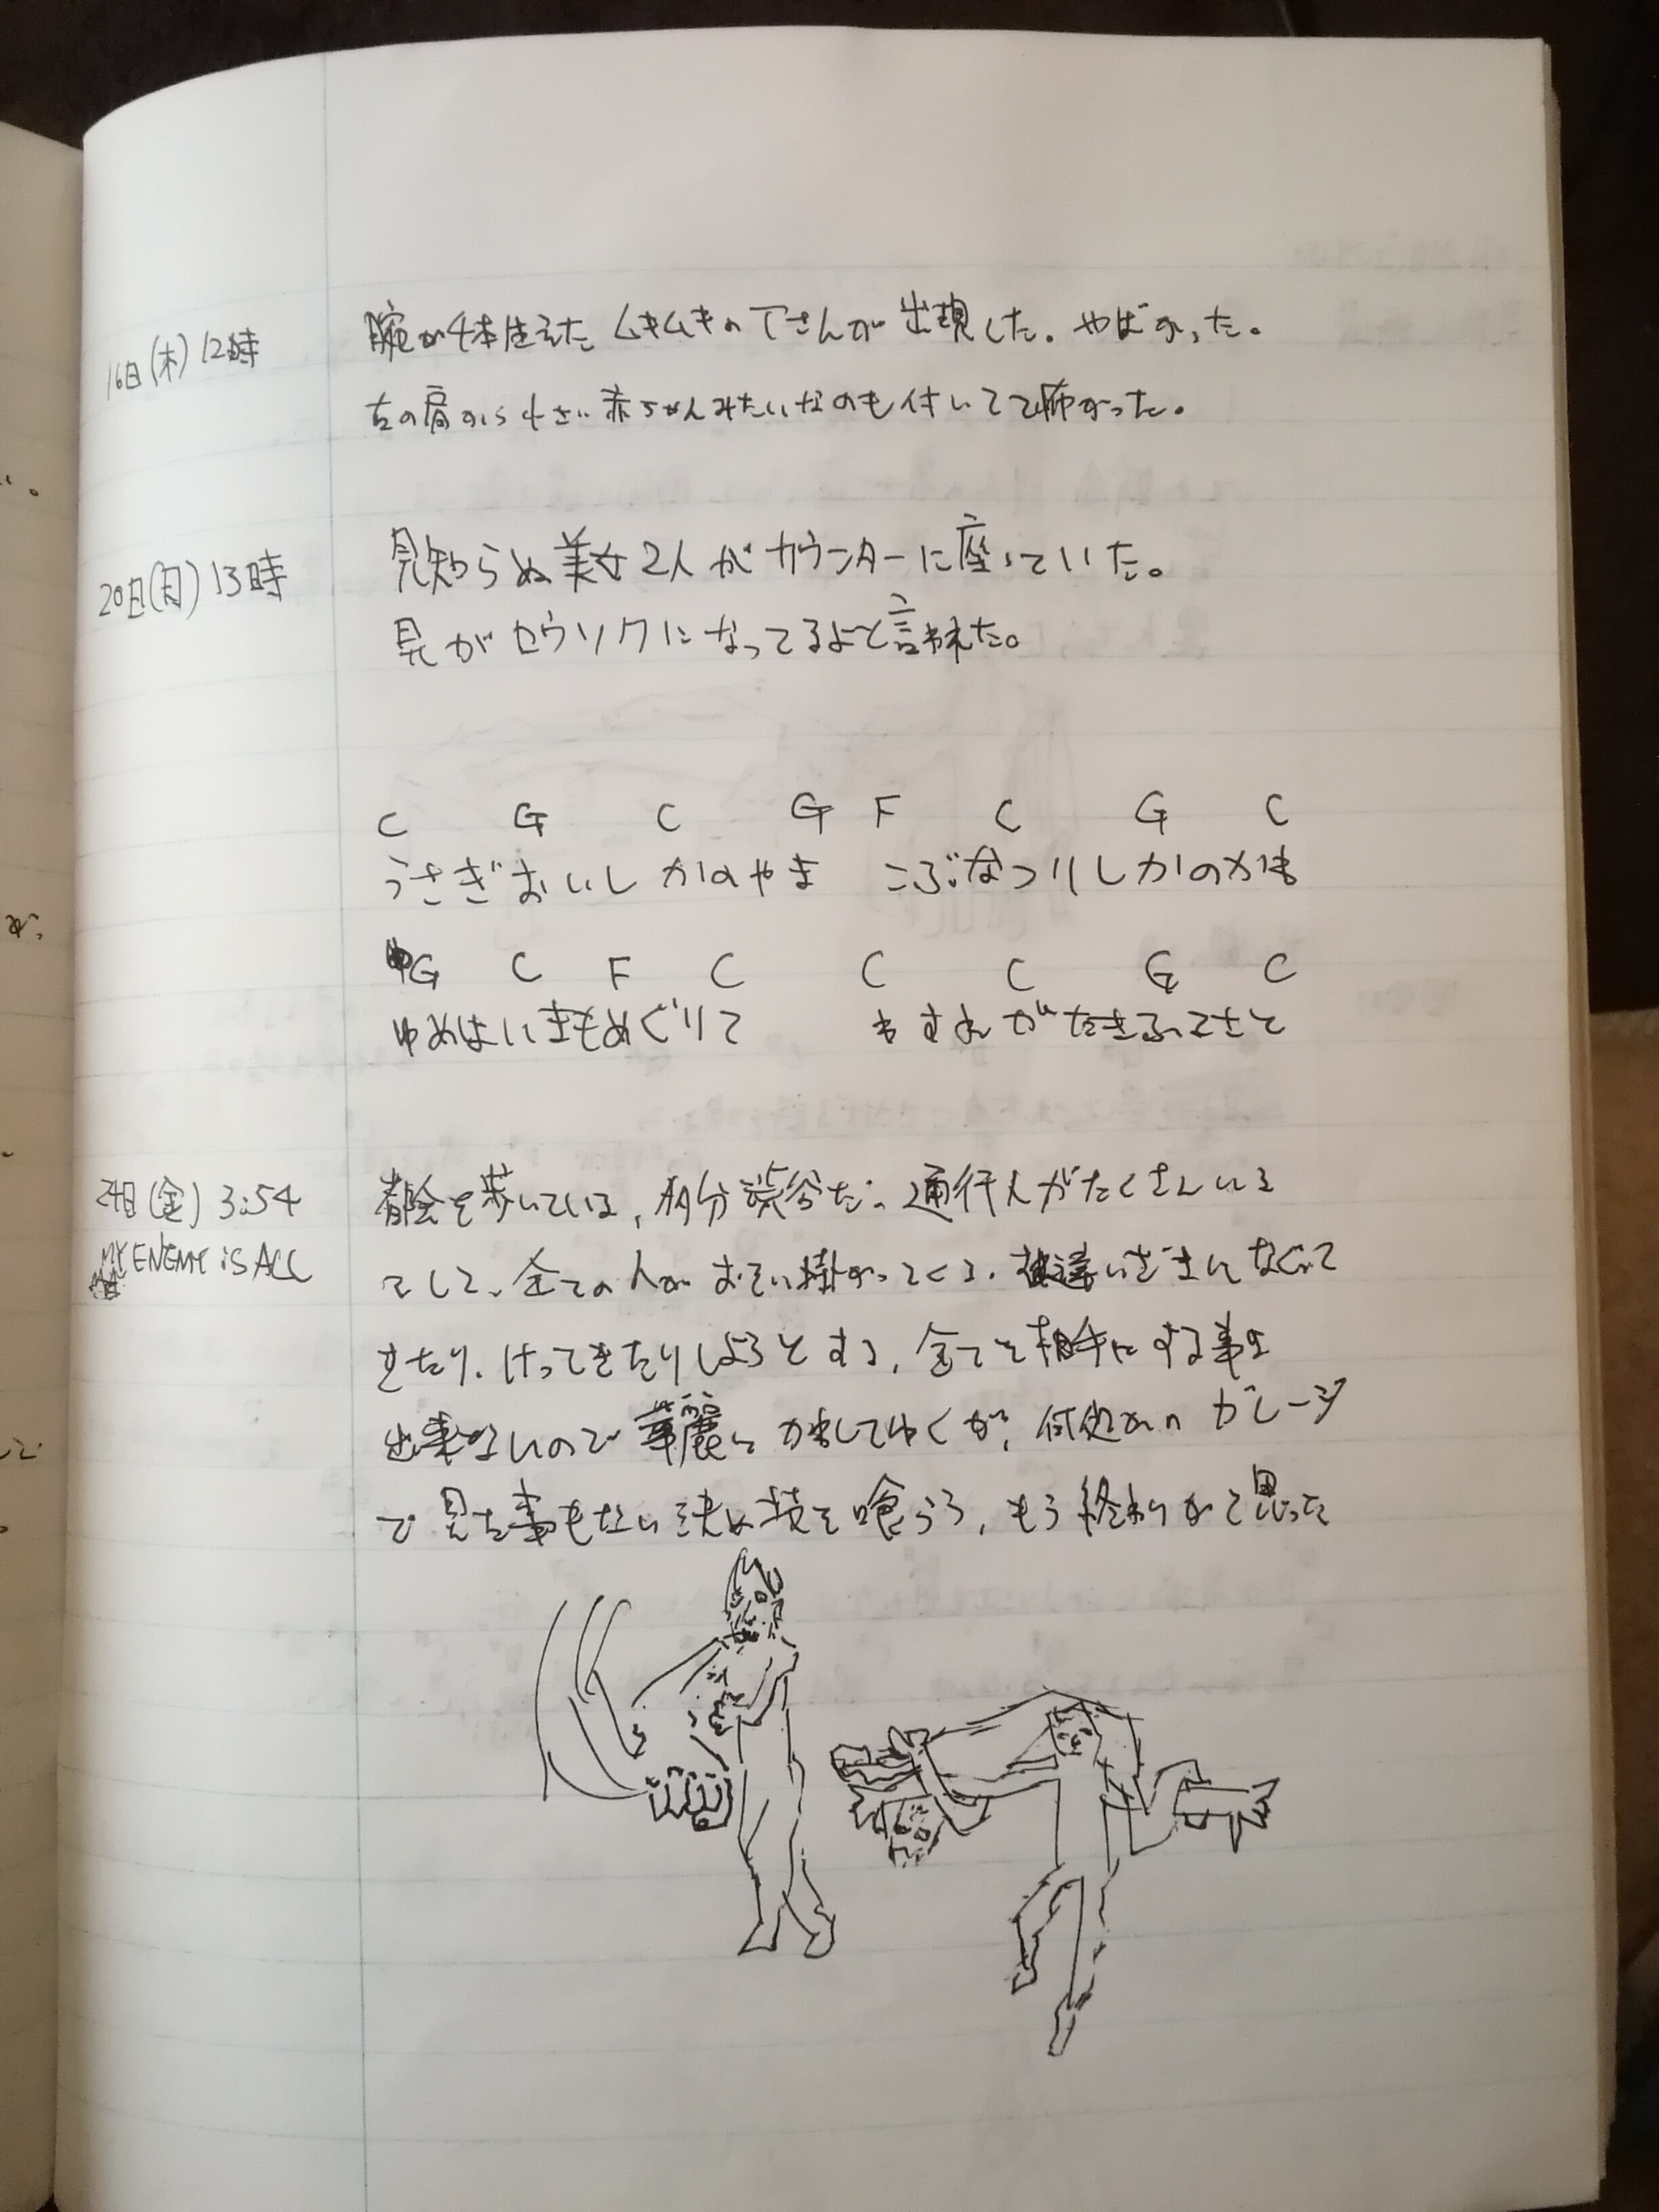 16日(木) 12時
腕が4本生えた ムキムキのTさんが出現した。やばかった。
左の肩から小さい赤ちゃんみたいなのも付いてて怖かった。
20日(月) 13時
見知らぬ美女2人がカウンターに座っていた。
兄がロウソクになってるよと言われた。
C G C G F C G C
うさぎおいし かのやま こぶなつりし かのかわ
G C F C C C G C
ゆめはいまもめぐりて わすれがたきふるさと
24日(金) 3:54
MY ENEMY iS ALL
都会を歩いている、多分渋谷だ。通行人がたくさんいる
そして、全ての人がおそい掛かってくる。すれ違いざまになぐって
きたり、けってきたりしようとする、全てを相手にする事は
出来ないので華麗にかわしてゆくが、何処かのガレージ
で見た事もない決め技を喰らう、もう終わりかと思った